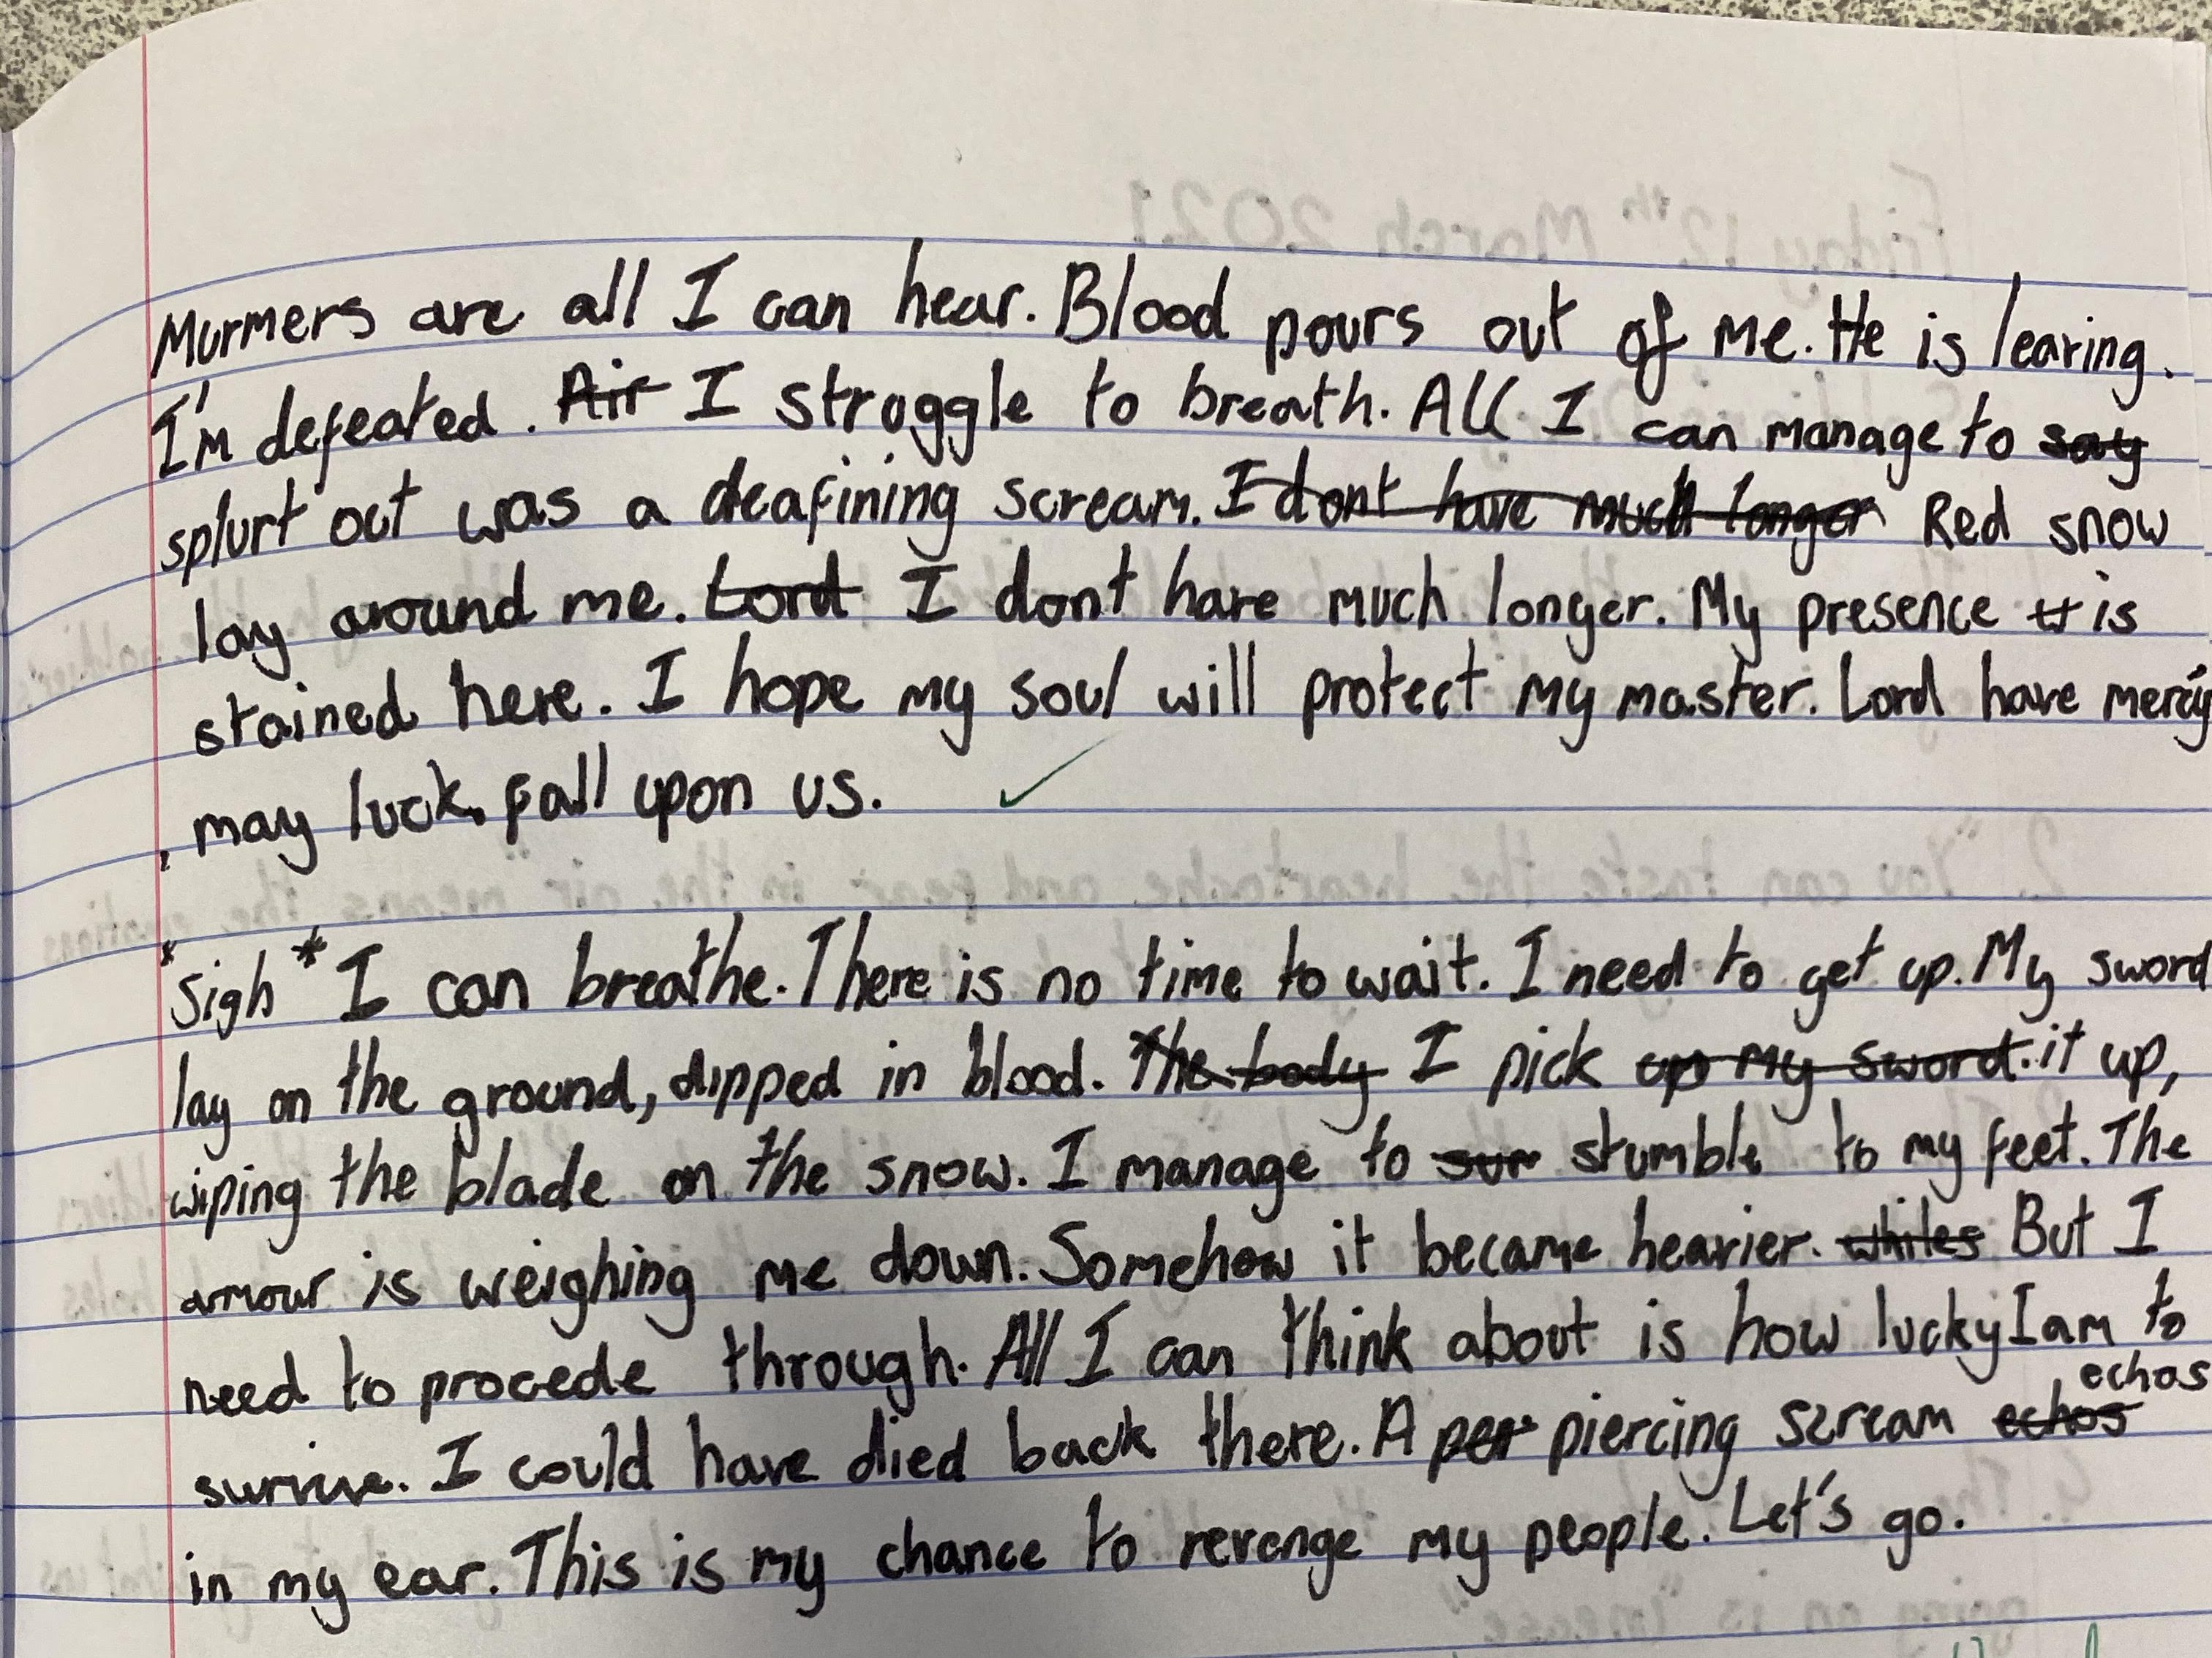 Murmers are all I can hear. Blood pours out of me. He is leaving.
I'm defeated. ~~Air~~ I struggle to breath. All I can manage to ~~say~~
splurt out was a deafining scream. ~~I dont have much longer~~ Red snow
lay around me. ~~Lord~~ I dont have much longer. My presence is
stained here. I hope my soul will protect my master. Lord have mercy
, may luck fall upon us.
*Sigh* I can breathe. There is no time to wait. I need to get up. My sword
lay on the ground, dipped in blood. ~~The body~~ I pick ~~up my sword.~~ it up,
wiping the blade on the snow. I manage to ~~sur~~ stumble to my feet. The
armour is weighing me down. Somehow it became heavier. ~~whiles~~ But I
need to procede through. All I can think about is how lucky I am to
echos
survive. I could have died back there. A ~~per~~ piercing scream ~~echos~~
in my ear. This is my chance to revenge my people. Let's go.
Friday 12th March 2021